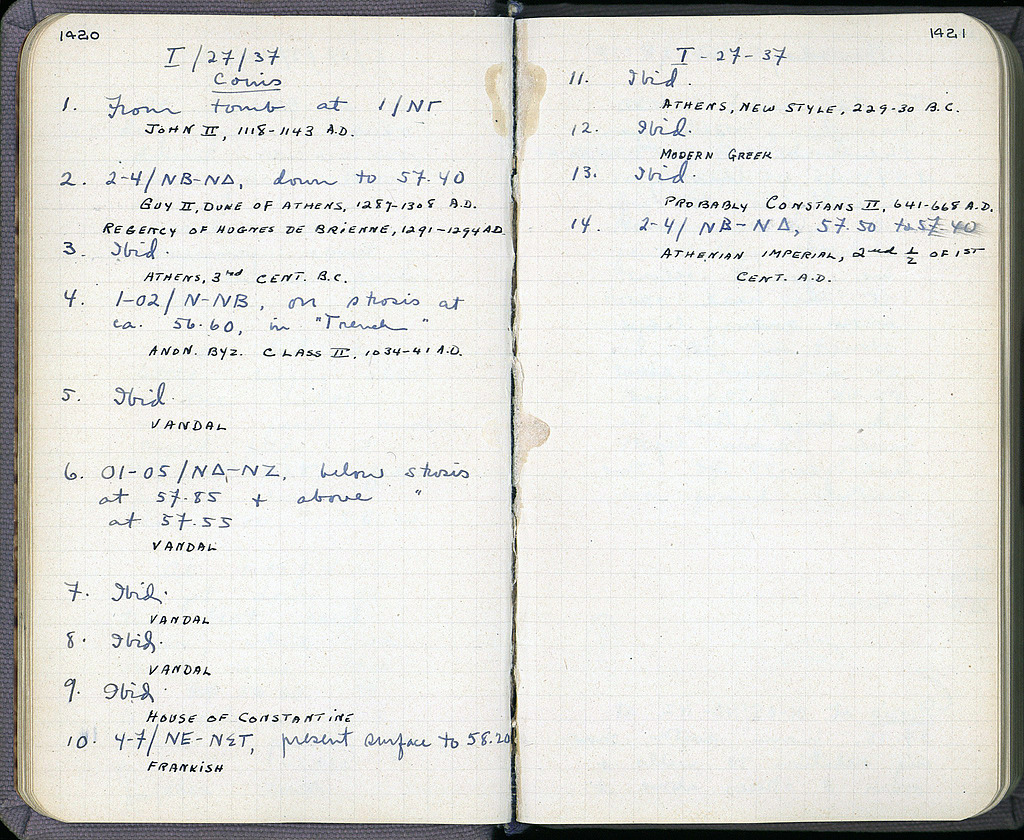 1420
I/27/37
Coins
1. From tomb at 1/NΓ
JOHN II, 1118-1143 A.D.
2. 2-4/NB-NΔ, down to 57.40
GUY II, DUKE OF ATHENS, 1287-1308 A.D.
REGENCY OF HUGNES DE BRIENNE, 1291-1294 AD
3. Ibid.
ATHENS, 3rd CENT. B.C.
4. 1-02/N-NB, on strosis at
ca. 56.60, in "Trench"
ANON. BYZ. CLASS II, 1034-41 A.D.
5. Ibid.
VANDAL
6. 01-05/NΔ-NZ, below strosis
at 57.85 + above "
at 57.55
VANDAL
7. Ibid.
VANDAL
8. Ibid.
VANDAL
9. Ibid
HOUSE OF CONSTANTINE
10. 4-7/NE-NΣT, present surface to 58.20
FRANKISH
1421
I-27-37
11. Ibid.
ATHENS, NEW STYLE, 229-30 B.C.
12. Ibid.
MODERN GREEK
13. Ibid.
PROBABLY CONSTANS II, 641-668 A.D.
14. 2-4/NB-NΔ, 57.50 to 57.40
ATHENIAN IMPERIAL, 2nd ½ OF 1ST
CENT. A.D.